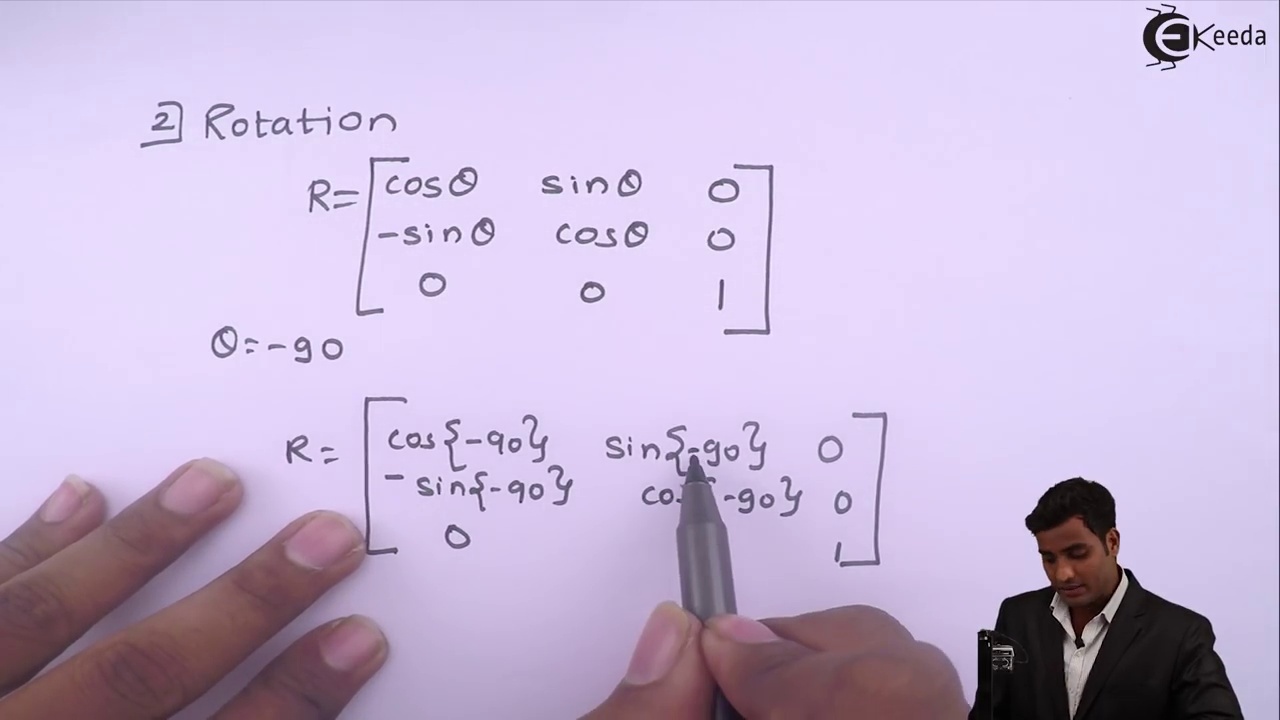 EKeeda
2] Rotation
R= [ cosθ sinθ 0
-sinθ cosθ 0
0 0 1 ]
θ=-90
R= [ cos{-90} sin{-90} 0
-sin{-90} cos{-90} 0
0 1 ]